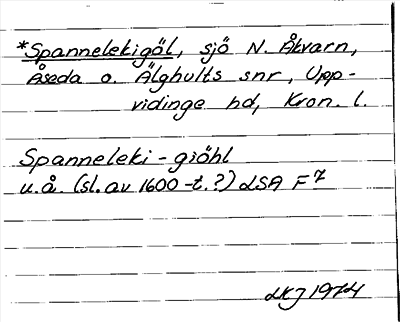 *Spannelekigöl, sjö N. Åkvarn,
Åseda o. Älghults snr, Upp-
vidinge hd, Kron. l.
Spanneleki-giöhl
u.å. (sl. av 1600-t.?) LSA F7
LKJ 1974